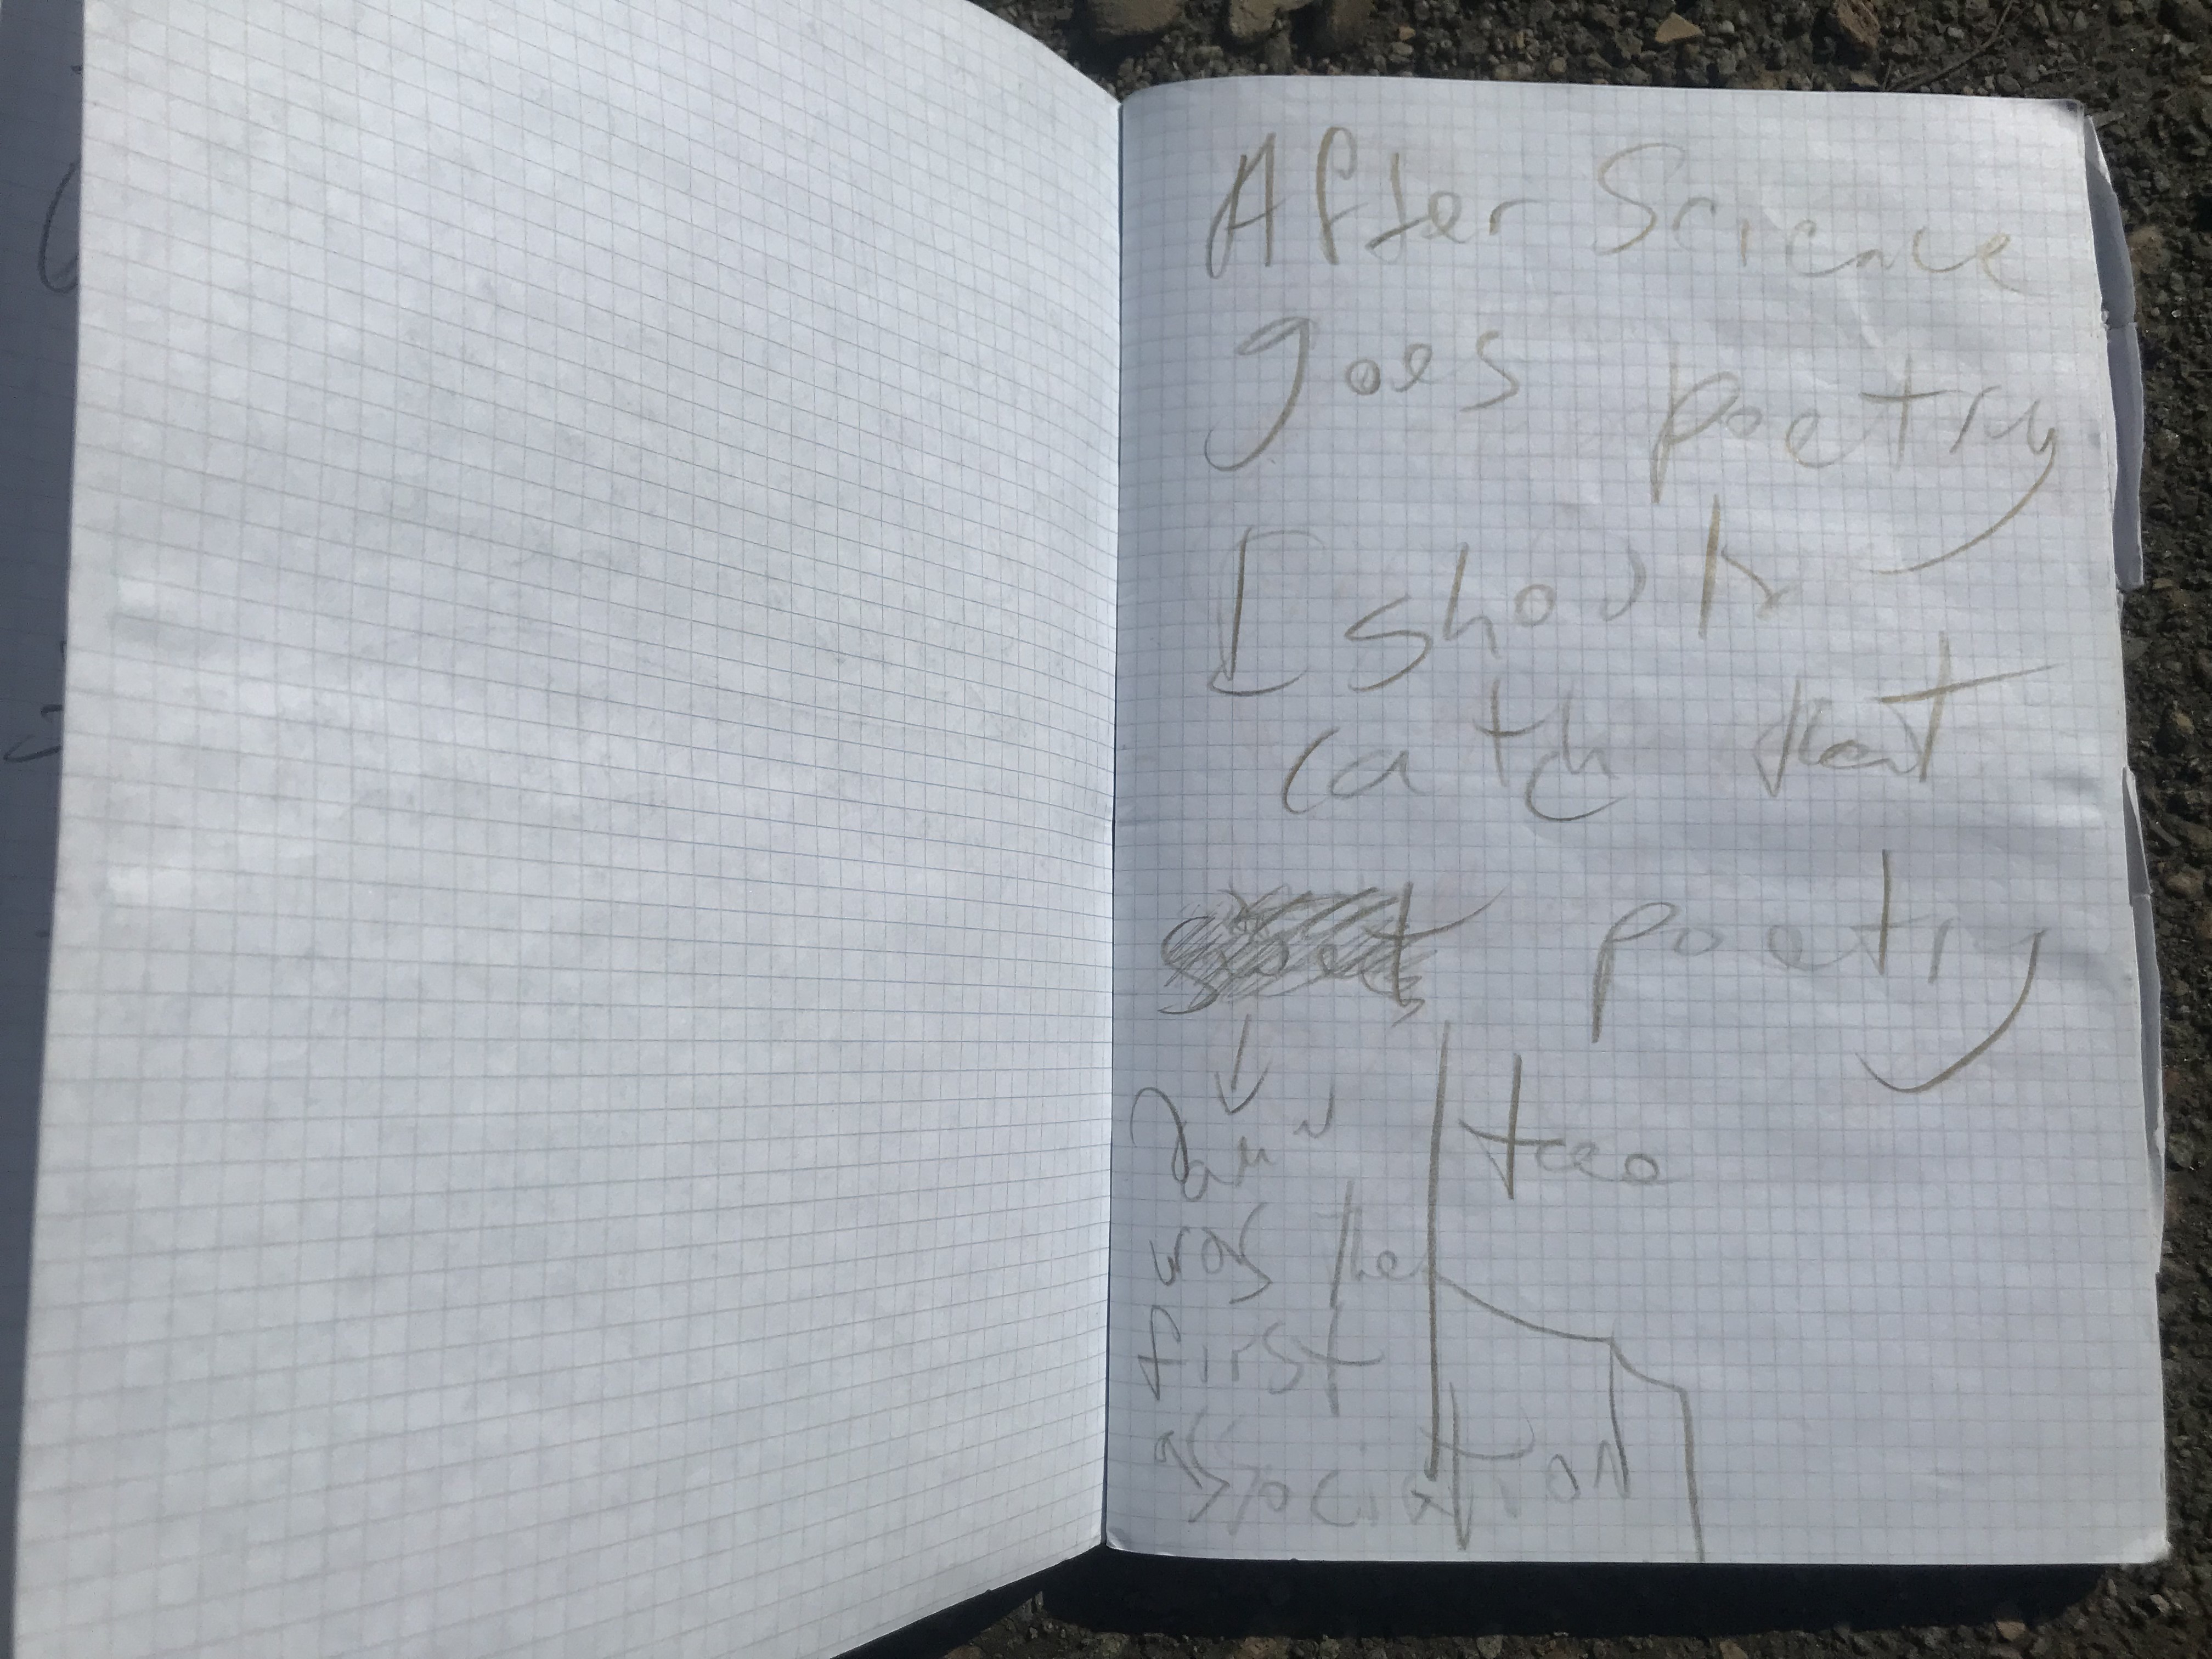 After Science
goes poetry
I should
catch that
poetry
too
was the
first
association